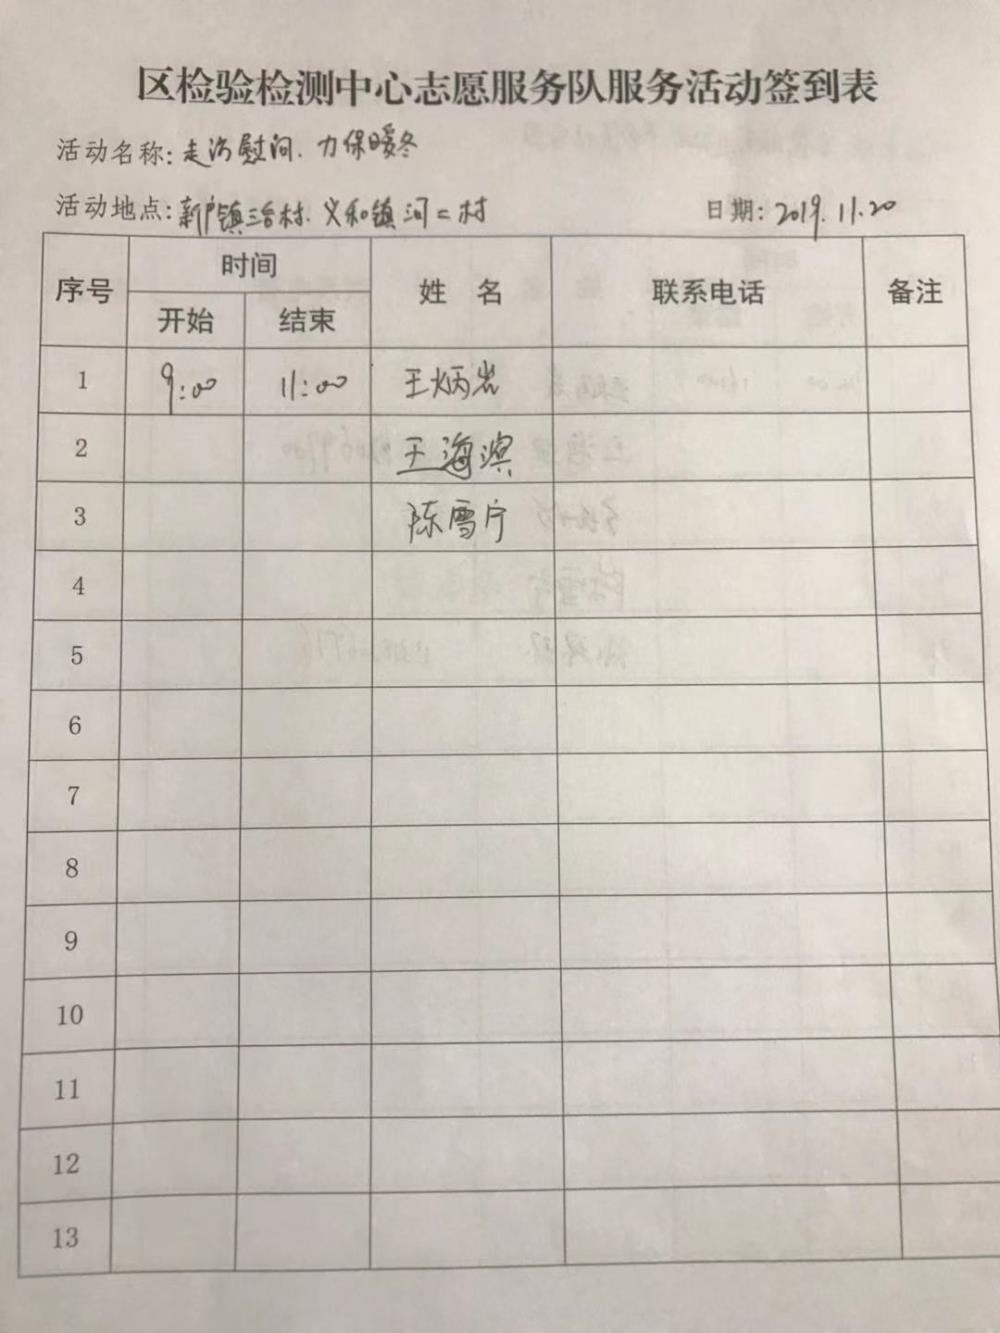 区检验检测中心志愿服务队服务活动签到表
活动名称: 走访慰问、力保暖冬
活动地点: 新户镇三合村、义和镇河二村 日期: 2019.11.20
序号 时间 姓 名 联系电话 备注
开始 结束
1 9:00 11:00 王炳岩
2 王海滨
3 陈雪宁
4
5
6
7
8
9
10
11
12
13